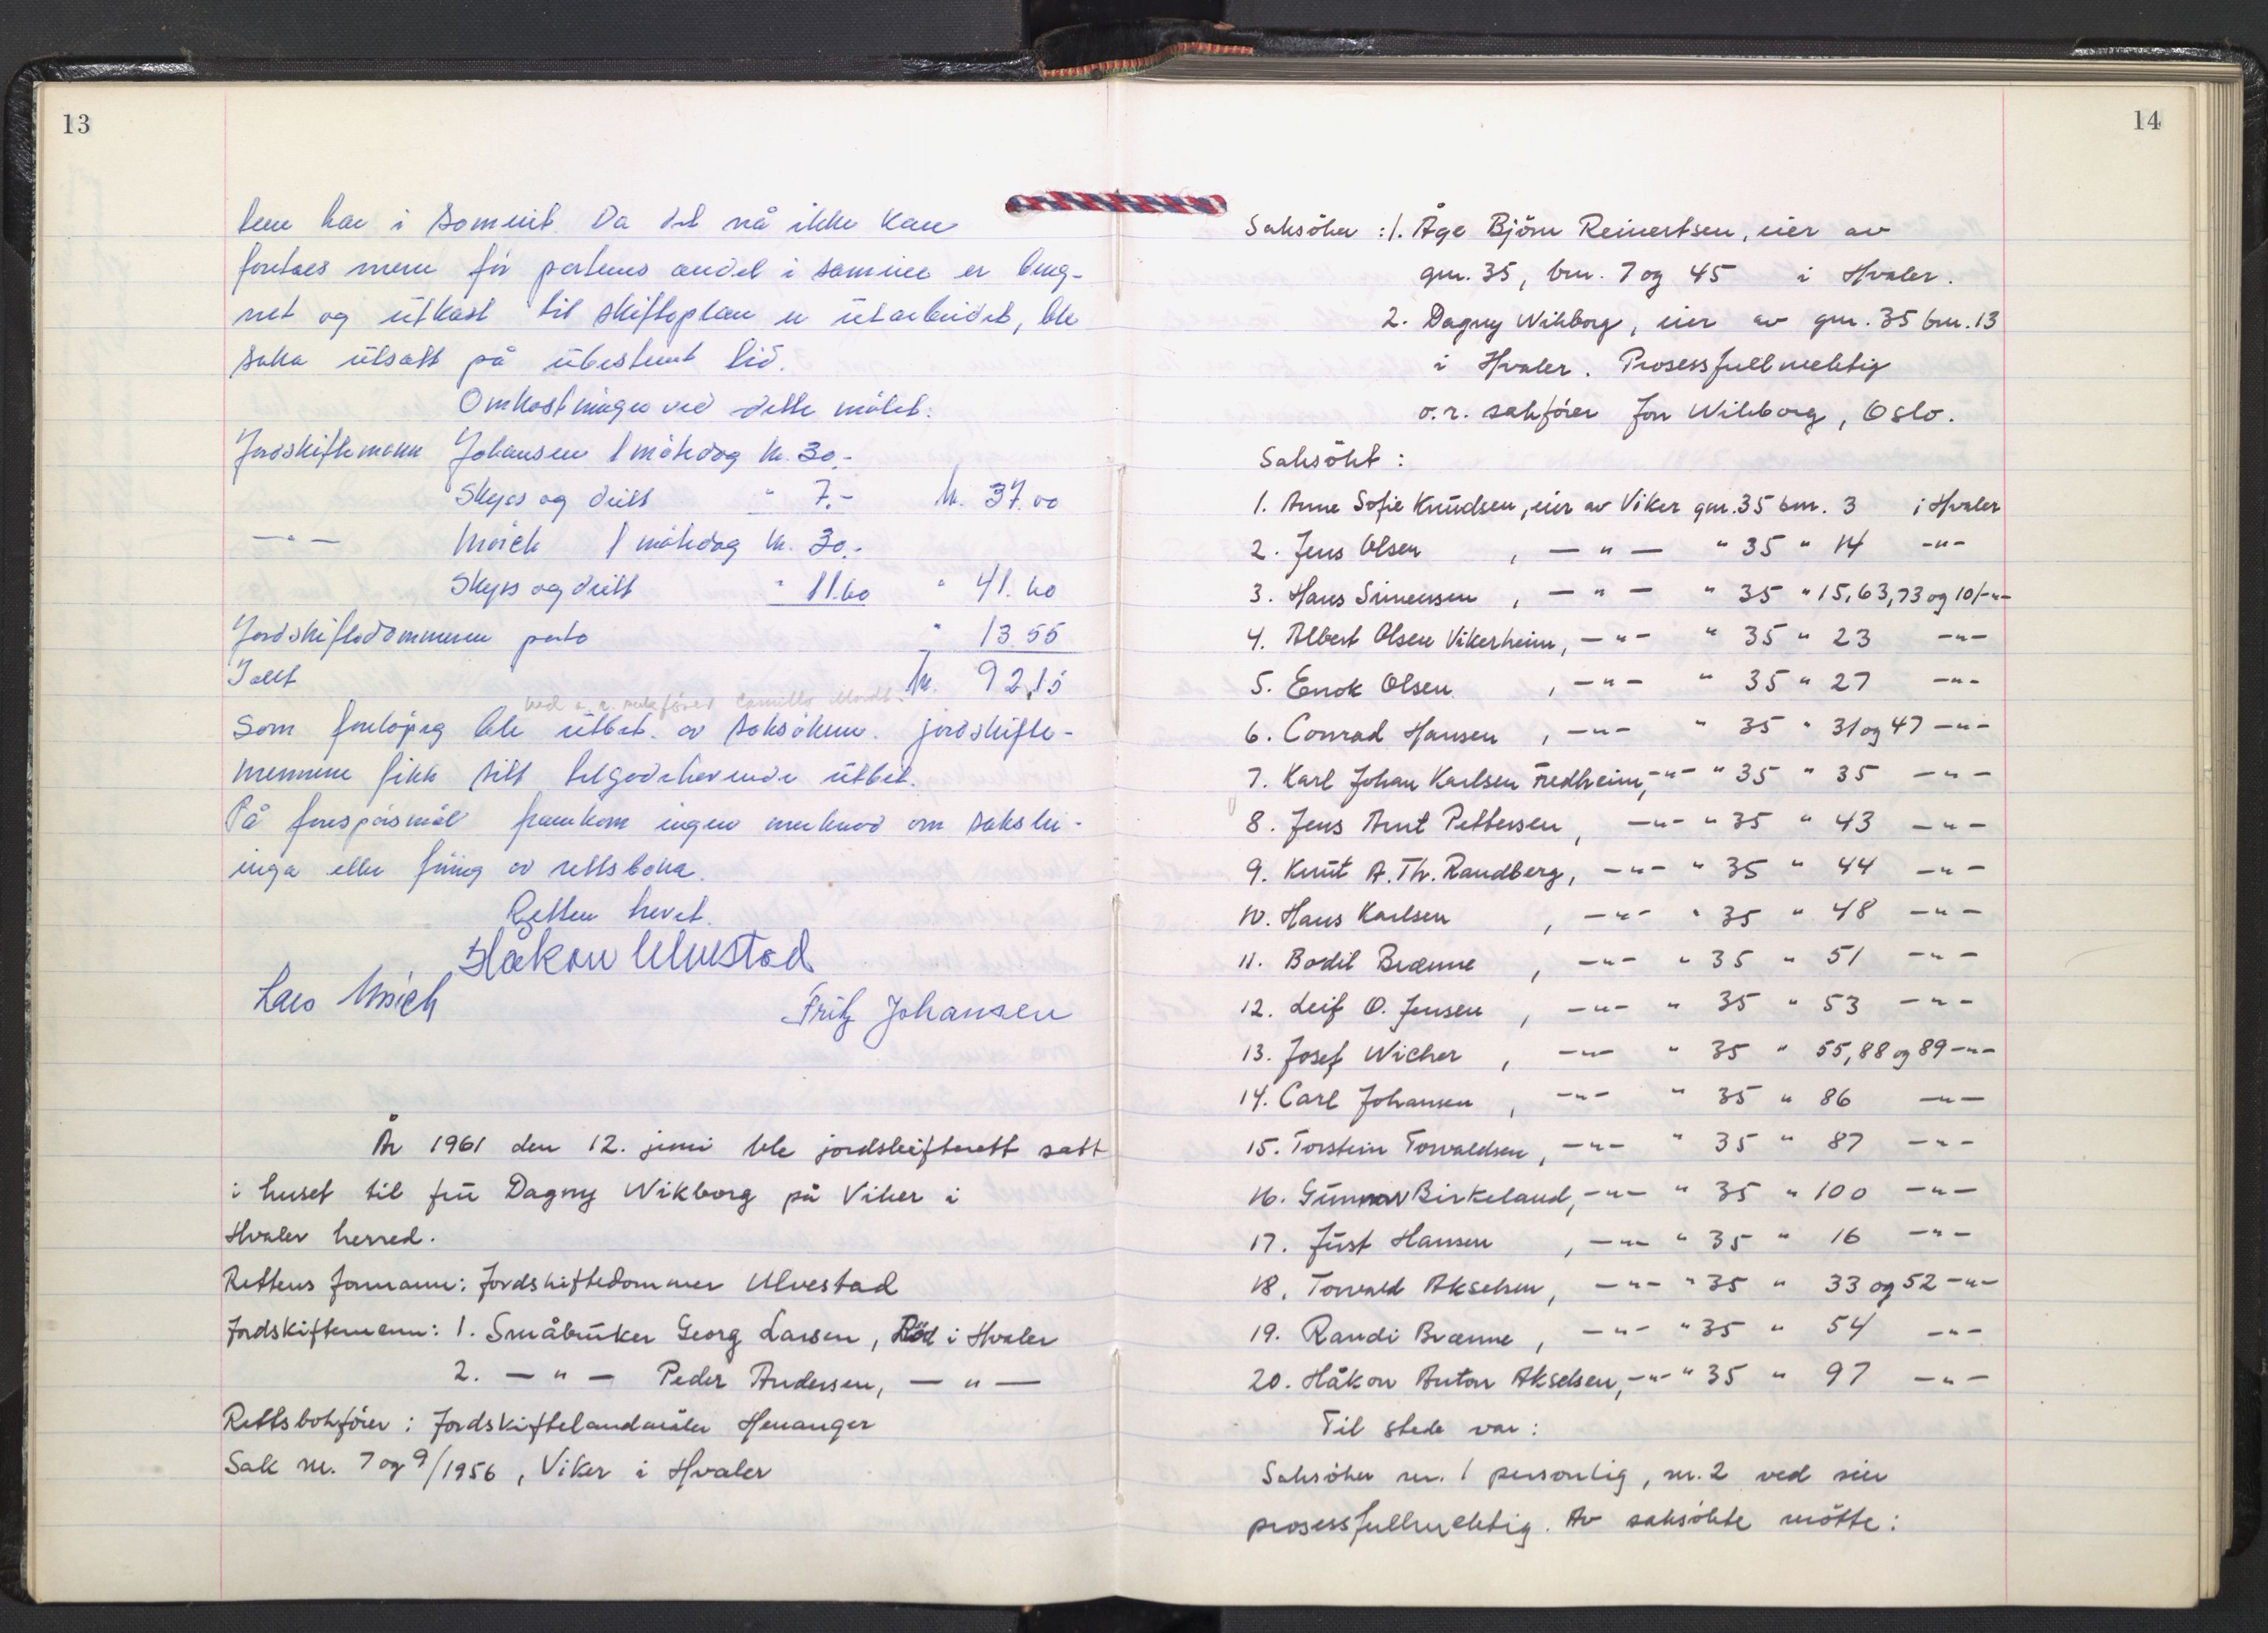 13
tene har i sameiet. Da det nå ikke kan
foretaes mere før partenes andel i sameiee er bereg-
net og utkast til skifteplan er utarbeidet, ble
saka utsatt på ubestemt tid.
Omkostningen ved dette møtet:
Jordskiftemann Johansen 1 møtedag kr. 30.-
Skyss og diett " 7.- kr. 37.00
— " — Mörch 1 møtedag kr. 30.-
Skyss og diett " 11.60 " 41.60
Jordskiftedommeren porto " 13.55
Ialt kr. 92,15
ved o.r. sakfører Camillo Mordt.
Som foreløpig ble utbet. av saksøkeren. Jordskifte-
mennene fikk sitt tilgodehavende utbet.
På forespørsmål framkom ingen merknad om saksbe-
inga ellerføring av rettsboka.
Retten hevet.
Håkon Ulvestad
Lars Mörch
Fritz Johansen
År 1961 den 12. juni ble jordskifterett satt
i huset til frü Dagny Wikborg på Viker i
Hvaler herred.
Rettens formann: Jordskiftedommer Ulvestad
Jordskiftemenn: 1. Småbrüker Georg Larsen, Röd i Hvaler
2. — " — Peder Andersen, — " —
Rettsbokförer: Jordskiftelandmåler Henanger
Sak nr. 7 og 9/1956, Viker i Hvaler
14
Saksöker: 1. Åge Björn Reinertsen, eier av
gnr. 35, bnr. 7 og 45 i Hvaler.
2. Dagny Wikborg, eier av gnr. 35 bnr. 13
i Hvaler. Prosessfullmektig
o.r. sakförer Jon Wikborg, Oslo.
Saksökt:
1. Anne Sofie Knüdsen, eier av Viker gnr. 35 bnr. 3 i Hvaler
2. Jens Olsen, — " — " 35 " 14 -"-
3. Hans Simensen, — " — " 35 " 15, 63, 73 og 101 -"-
4. Albert Olsen Vikerheim, — " — " 35 " 23 -"-
5. Enok Olsen, — " — " 35 " 27 -"-
6. Conrad Hansen, — " — " 35 " 31 og 47 -"-
7. Karl Johan Karlsen Fredheim, -"- " 35 " 35 -"-
8. Jens Arnt Pettersen, -"- " 35 " 43 -"-
9. Knüt A. Th. Randberg, -"- " 35 " 44 -"-
10. Hans Karlsen, -"- " 35 " 48 -"-
11. Bodil Brænne, -"- " 35 " 51 -"-
12. Leif O. Jensen, -"- " 35 " 53 -"-
13. Josef Wicher, -"- " 35 " 55, 88 og 89 -"-
14. Carl Johansen, -"- " 35 " 86 -"-
15. Torstein Torvaldsen, -"- " 35 " 87 -"-
16. Günnar Birkeland, -"- " 35 " 100 -"-
17. Jüst Hansen, -"- " 35 " 16 -"-
18. Torvald Akselsen, -"- " 35 " 33 og 52 -"-
19. Randi Brænne, -"- " 35 " 54 -"-
20. Håkon Anton Akselsen, -"- " 35 " 97 -"-
Til stede var:
Saksöker nr. 1 personlig, nr. 2 ved sin
prosessfullmektig. Av saksökte mötte: